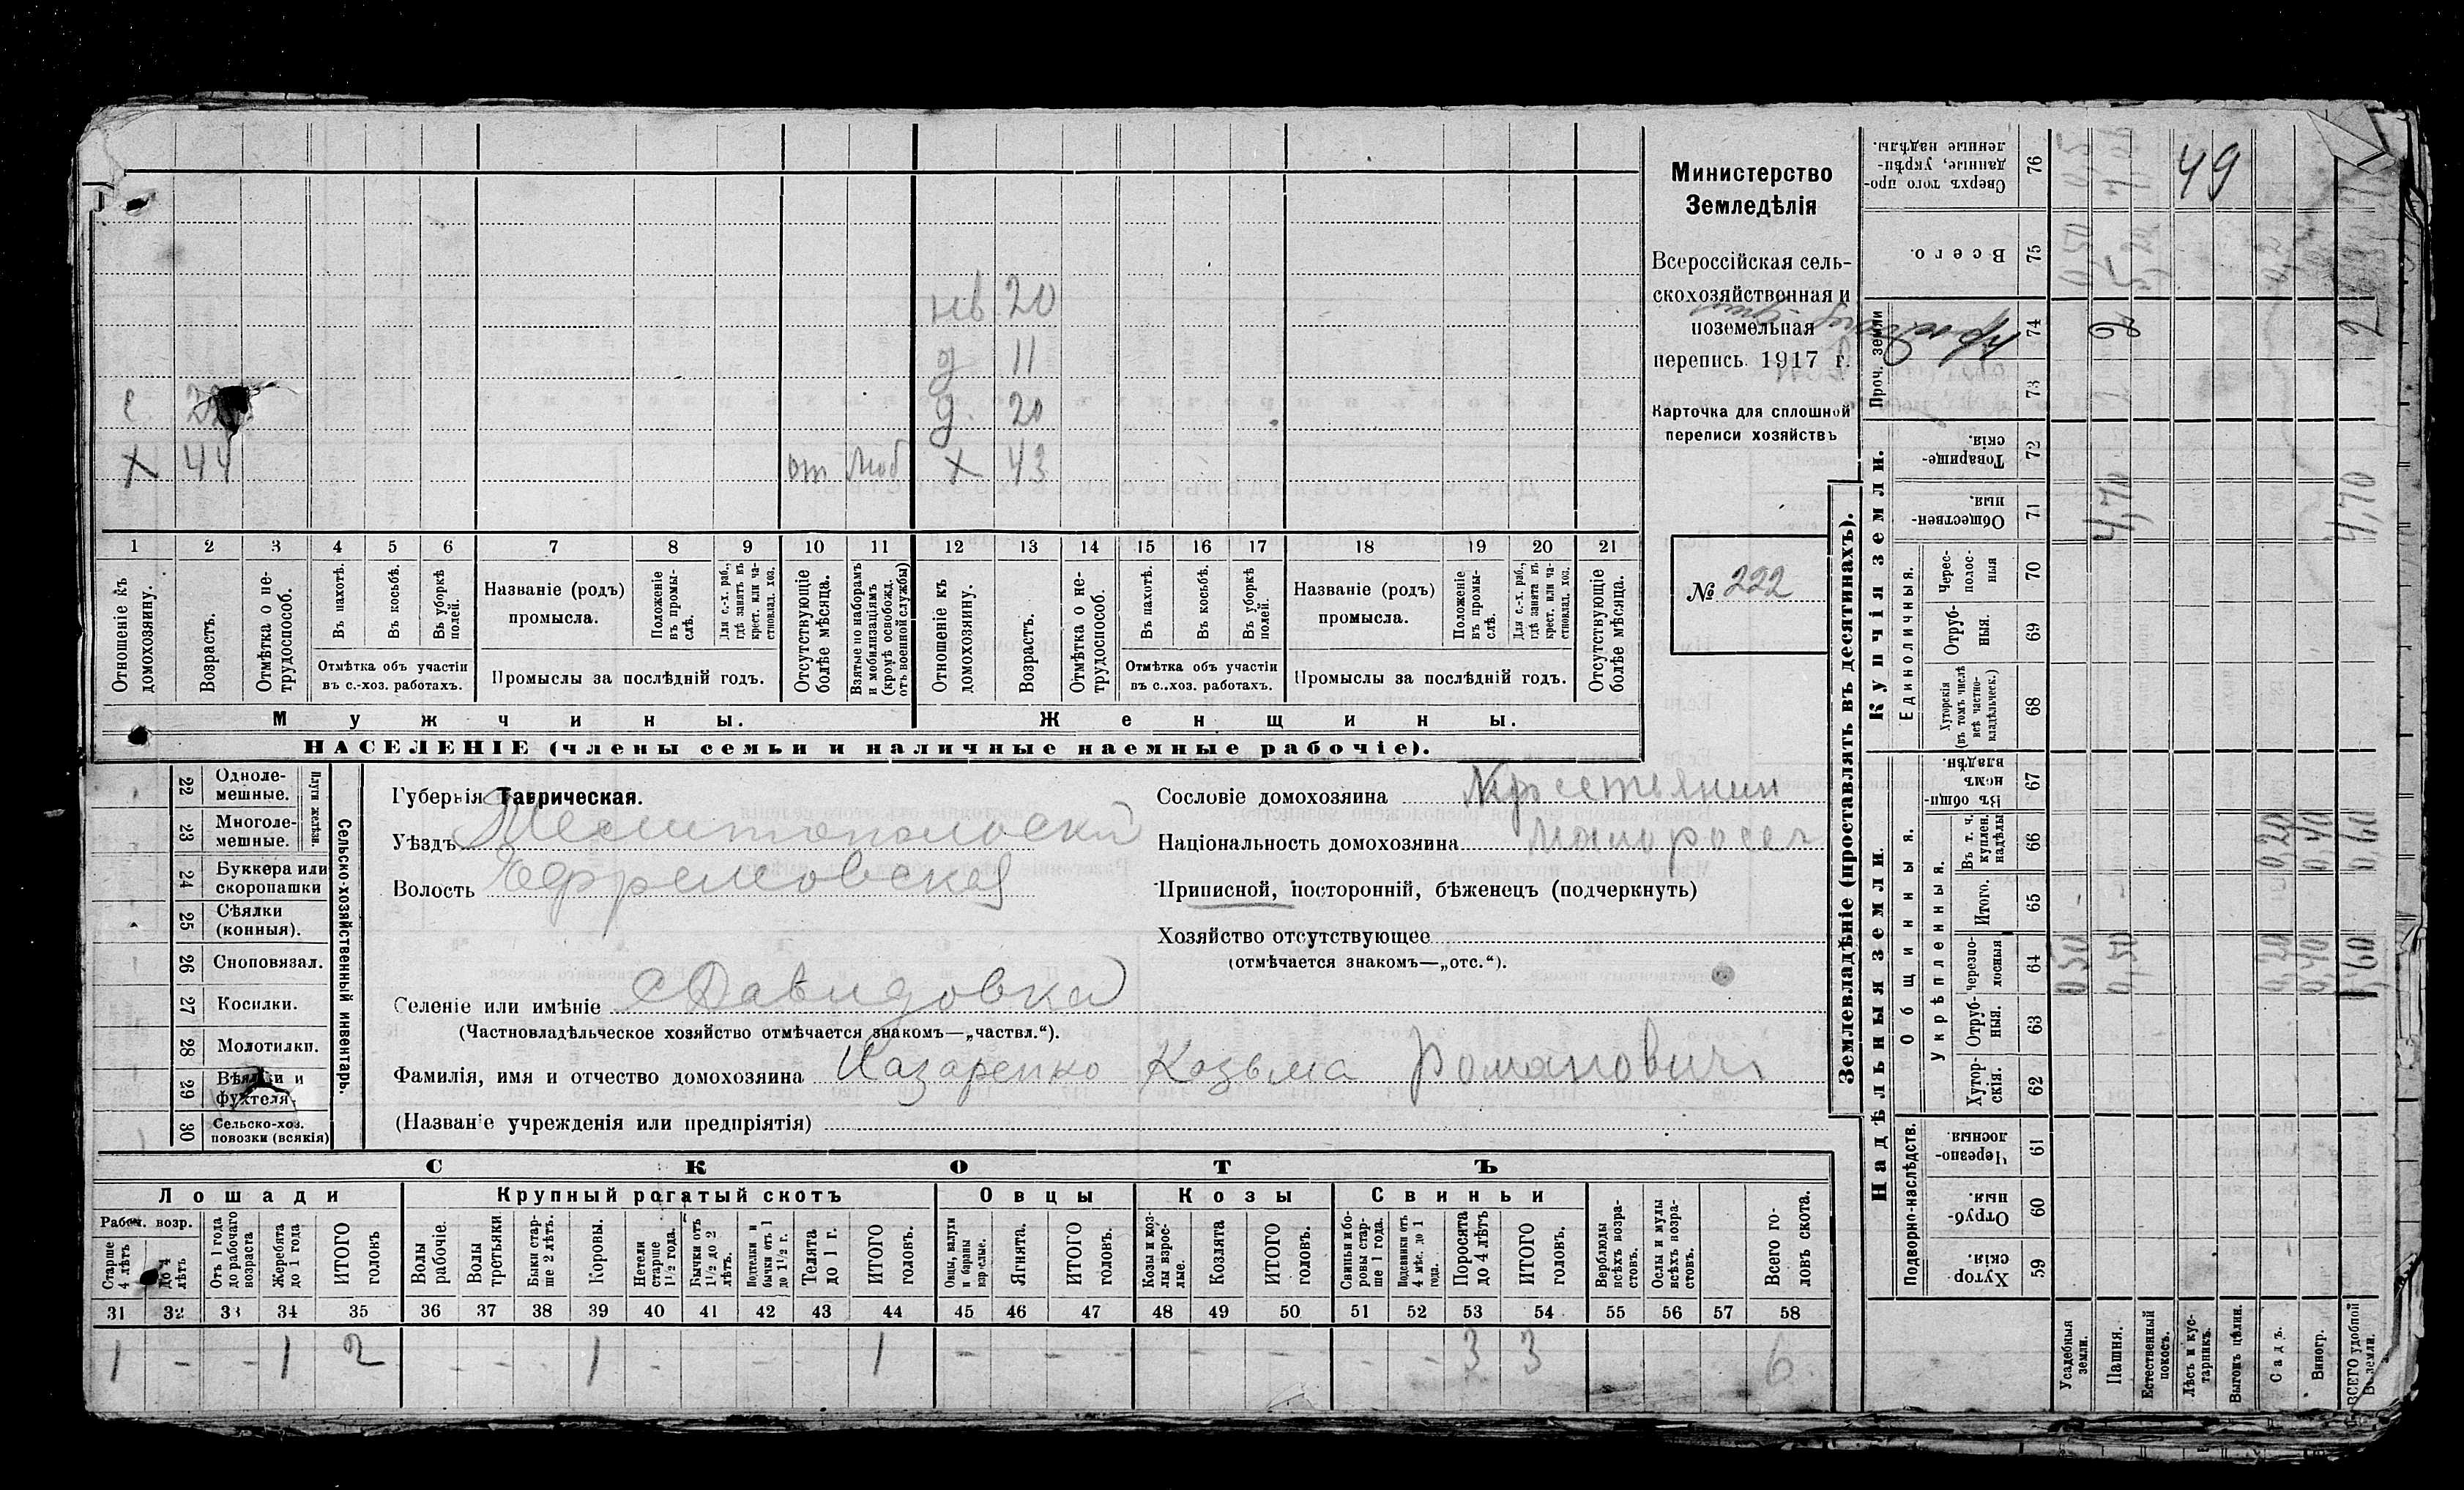 Министерство
Земледѣлія
Всероссійская сель-
скохозяйственная и
поземельная
перепись 1917 г.
Карточка для сплошной
переписи хозяйствъ
№ 222
49
нв 20
д 11
с. д. 20
х 44 от моб х 43
1 2 3 4 5 6 7 8 9 10 11 12 13 14 15 16 17 18 19 20 21
Отношеніе къ домохозяину.
Возрастъ.
Отмѣтка о не-трудоспособ.
Въ пахотѣ.
Въ косьбѣ.
Въ уборкѣ полей.
Отмѣтка объ участіи
въ с.-хоз. работахъ.
Названіе (родъ)
промысла.
Положеніе въ промы-слѣ.
Для с.-х. раб., гдѣ занятъ въ крест. или ча-стновлад. хоз.
Промыслы за послѣдній годъ.
Отсутствующіе болѣе мѣсяца.
Взятые по наборамъ и мобилизаціямъ (кромѣ освобожд. отъ военной службы)
Отношеніе къ домохозяину.
Возрастъ.
Отмѣтка о не-трудоспособ.
Въ пахотѣ.
Въ косьбѣ.
Въ уборкѣ полей.
Отмѣтка объ участіи
въ с.-хоз. работахъ.
Названіе (родъ)
промысла.
Положеніе въ промы-слѣ.
Для с.-х. раб., гдѣ занята въ крест. или ча-стновлад. хоз.
Промыслы за послѣдній годъ.
Отсутствующіе болѣе мѣсяца.
Мужчины. Женщины.
НАСЕЛЕНІЕ (члены семьи и наличные наемные рабочіе).
Сельско-хозяйственный инвентарь.
Плуги желѣзн.
22 Одноле-мешные.
23 Многоле-мешные.
24 Буккера или скоропашки
25 Сѣялки (конныя).
26 Сноповязал.
27 Косилки.
28 Молотилки.
29 Вѣялки и фухтеля.
30 Сельско-хоз. повозки (всякія)
Губернія Таврическая.
Уѣздъ Мелитопольскій
Волость Ефремовская
Селеніе или имѣніе с Давидовка
(Частновладѣльческое хозяйство отмѣчается знакомъ—„частвл.“).
Фамилія, имя и отчество домохозяина Назаренко Козьма Романовичъ
(Названіе учрежденія или предпріятія)
Сословіе домохозяина Крестьянин
Національность домохозяина Малоросс
Приписной, посторонній, бѣженецъ (подчеркнуть)
Хозяйство отсутствующее
(отмѣчается знакомъ—„отс.“).
СКОТЪ
Лошади Крупный рогатый скотъ Овцы Козы Свиньи
Рабоч. возр.
Старше 4 лѣтъ
до 4 лѣтъ
Отъ 1 года до рабочаго возраста
Жеребята до 1 года
ИТОГО головъ
Волы рабочіе.
Волы третьяки
Быки стар-ше 2 лѣтъ.
Коровы.
Нетели старше 1½ года.
Бычки отъ 1½ до 2 лѣтъ.
Подтелки и бычки отъ 1 до 1½ г.
Телята до 1 г.
ИТОГО головъ.
Овцы, валухи и бараны взрослые.
Ягнята.
ИТОГО головъ.
Козы и коз-лы взрос-лые.
Козлята
ИТОГО головъ.
Свиньи и бо-ровы стар-ше 1 года.
Подсвинки отъ 4 мѣс. до 1 года.
Поросята до 4 лѣтъ
ИТОГО головъ.
Верблюды всѣхъ возра-стовъ.
Ослы и мулы всѣхъ возра-стовъ.
Всего го-ловъ скота.
31 32 33 34 35 36 37 38 39 40 41 42 43 44 45 46 47 48 49 50 51 52 53 54 55 56 57 58
1 - - 1 2 - - - 1 - - - 1 - - - - - - - - 3 3 6
Землевладѣніе (проставлять въ десятинахъ).
Надѣльныя земли. Купчія земли. Проч. земли
Подворно-наслѣдств.
Общинныя.
Укрѣпленныя.
Единоличныя.
Хутор-скія. 59
Отруб-ныя. 60
Черезпо-лосныя 61
Хутор-скія. 62
Отруб-ныя. 63
Черезпо-лосныя 64
Итого. 65
Въ т. ч. куплен. надѣлы 66
Въ общин-номъ владѣн. 67
Хуторскія (въ томъ числѣ всѣ частно-владѣльческ.) 68
Отруб-ныя. 69
Черес-полос-ныя 70
Обществен-ныя. 71
Товарище-скія. 72
73
74
Всего. 75
Сверхъ того про-данные, укрѣп-ленные надѣлы. 76
Усадебныя земли. 0,50 0,50
Пашня. 0,50 4,70 2
Естественный покосъ.
Лѣсъ и кус-тарникъ.
Выгонъ цѣлин.
Садъ. 0,20 0,20
Виногр. 0,40 0,40
ВСЕГО удобной земли. 1,60 0,60 4,70 2